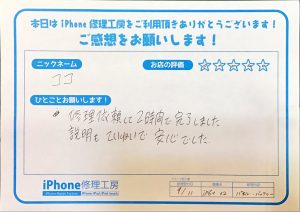 本日は iPhone 修理工房をご利用頂きありがとうございます!
ご感想をお願いします!
ニックネーム
ココ
お店の評価
☆☆☆☆☆
ひとことお願いします!
修理依頼して2時間で完了しました
説明もていねいで安心でした
iPhone修理工房
9/11